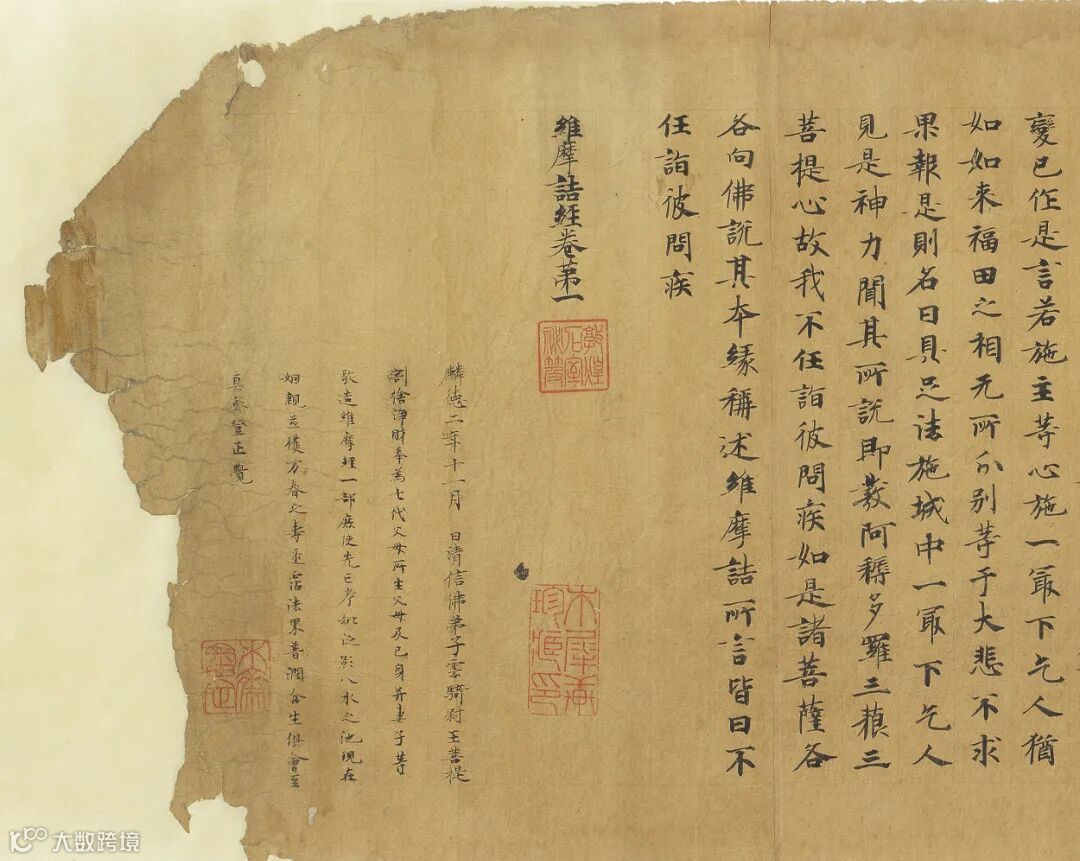 變已作是言若施主等心施一冣下乞人猶
如如来福田之相无所分别等于大悲不求
果報是則名曰具足法施城中一冣下乞人
見是神力聞其所說即裝阿耨多羅三藐三
菩提心故我不任詣彼問疾如是諸菩薩各
各向佛說其本緣稱述維摩詰所言皆曰不
任詣彼問疾
維摩詰經卷第一
敦煌石室祕笈
木犀軒珍藏印
麟德二年十一月 日清信佛弟子雲騎尉王菩提
割捨淨財奉為七代父母所生父母及已身并妻子等
敬造維摩經一部庶使先亡考妣泛影八水之池現在
姻親並積万春之壽亟沾法界普潤含生俱會至
真永登正覺
木齋
大数跨境